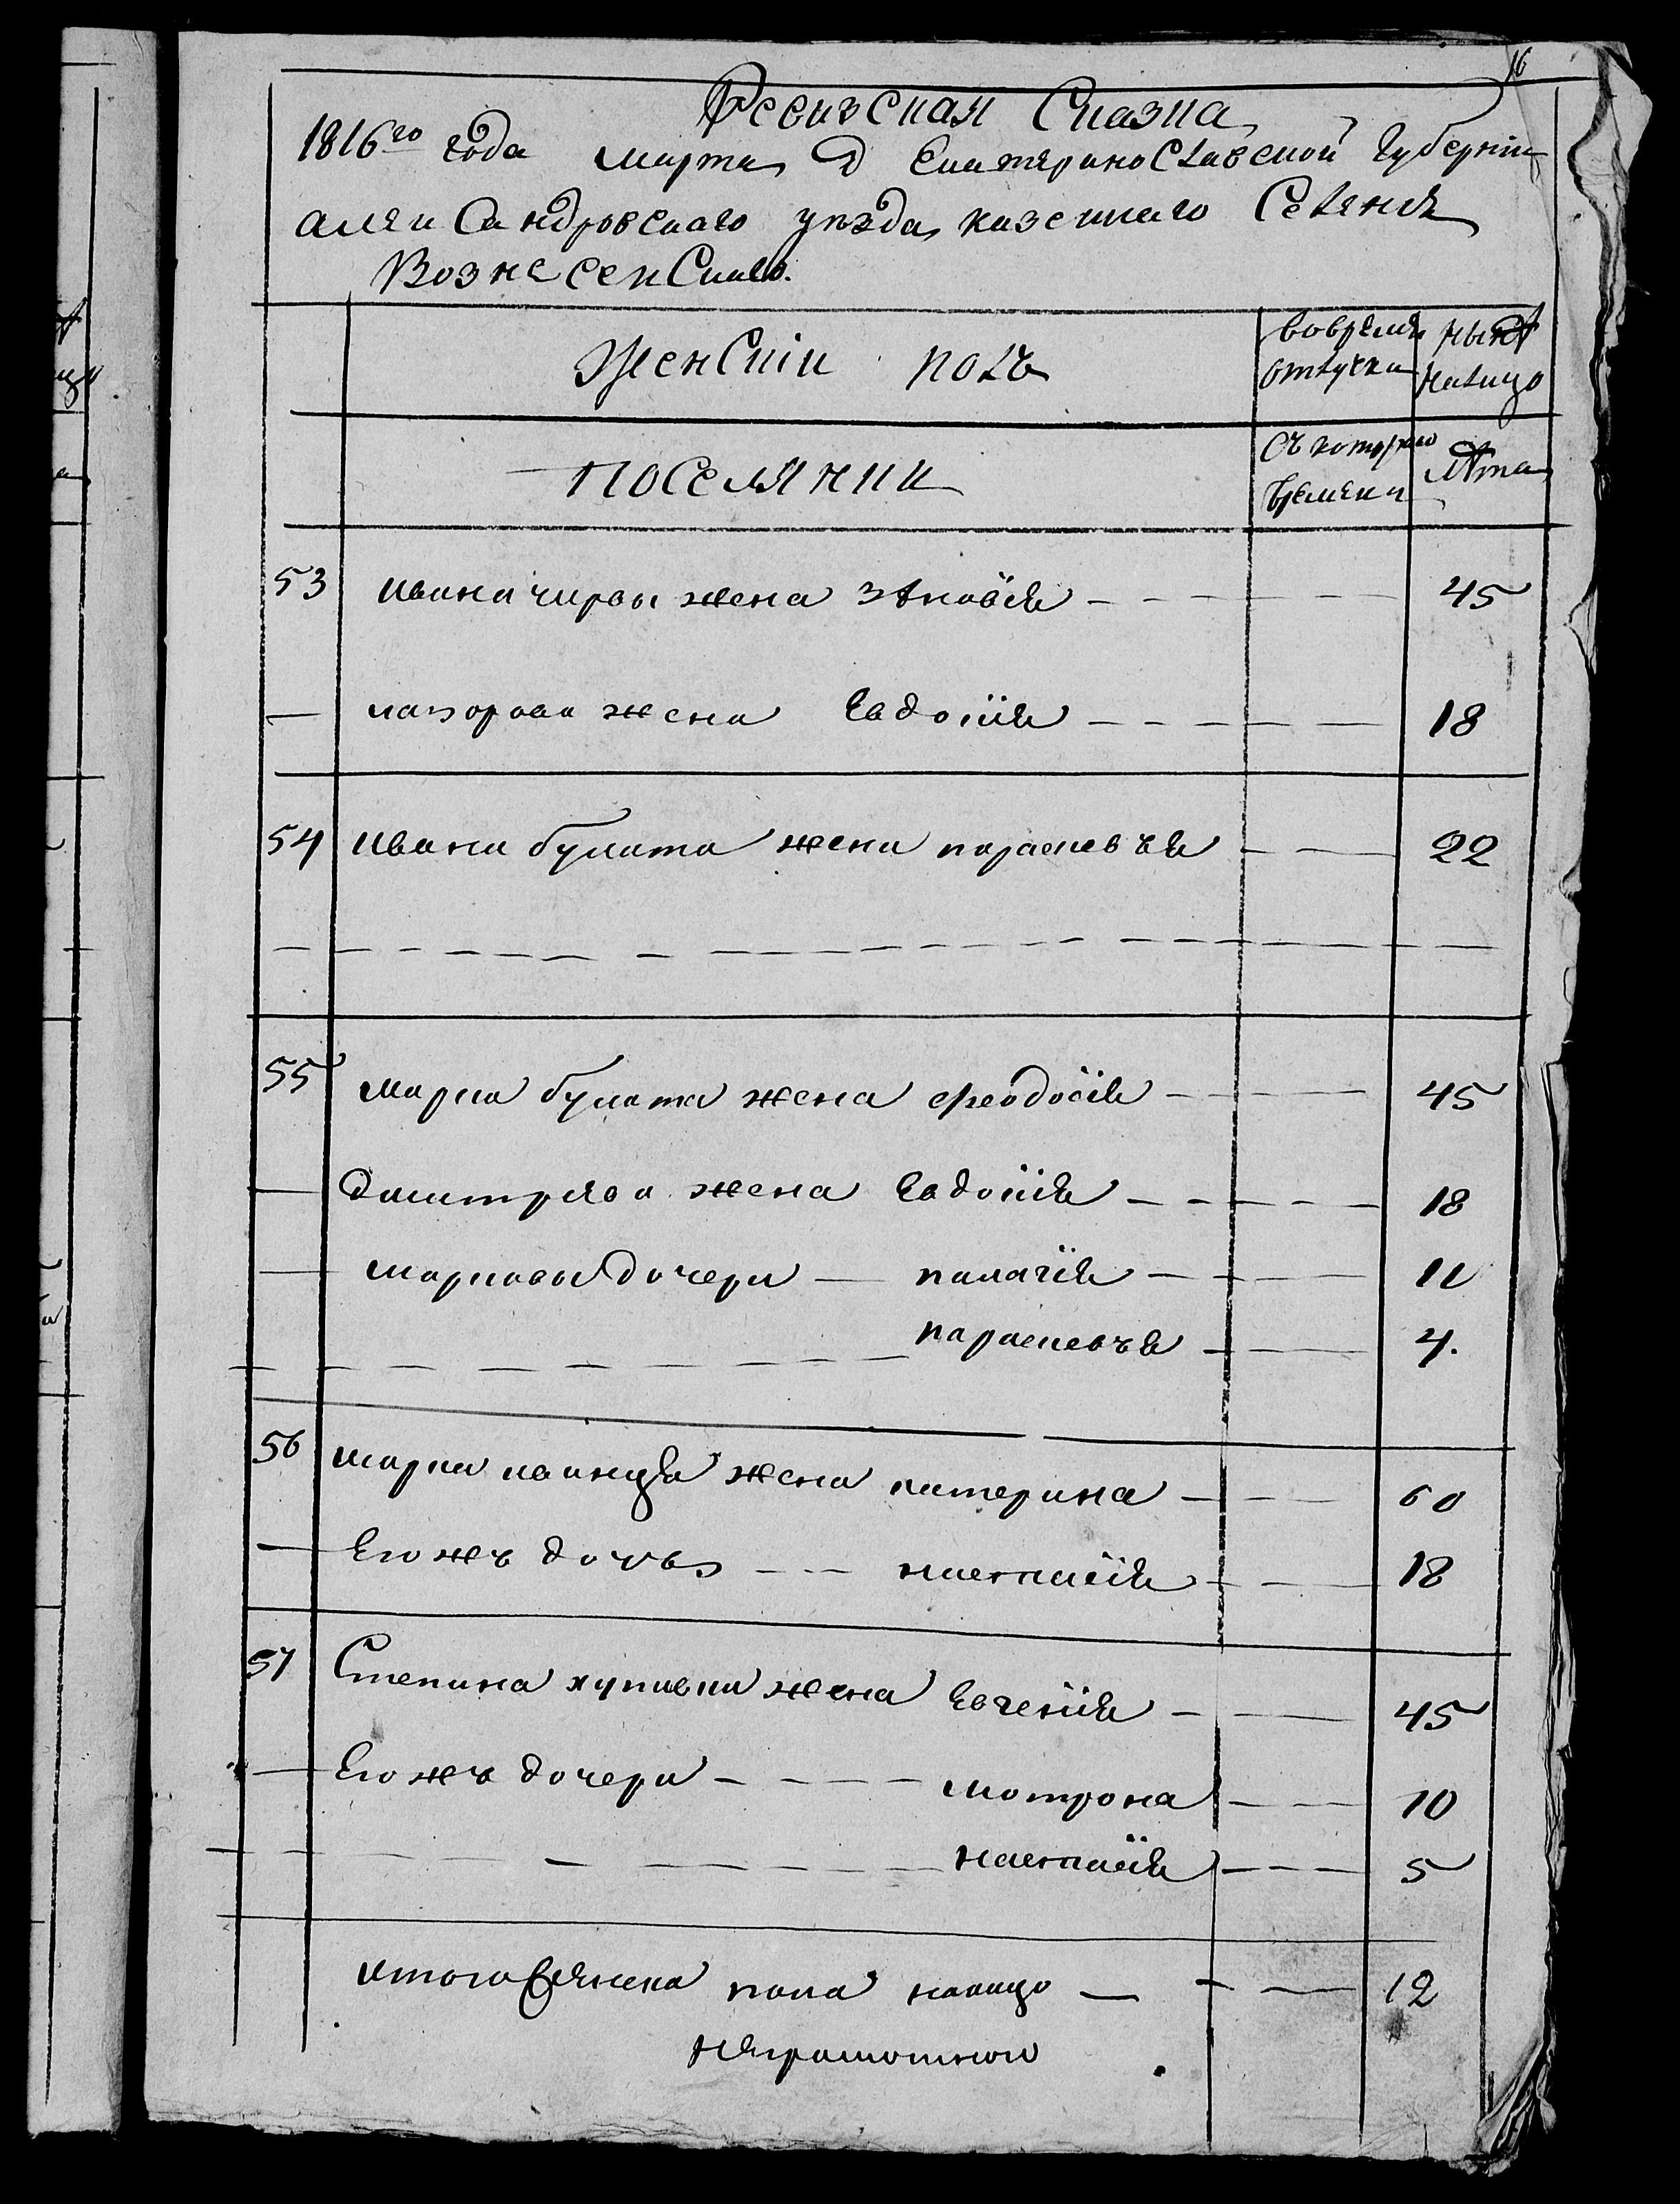 16
Ревизская Сказка
1816го года марта Д Екатеринославской губернии
александровского уѣзда казенного Селения
Вознесенского.
Женский полъ
вовремя отлучки
нынѣ налицо
поселянки
съ которого времени
лѣта
53 ивана чирвы жена зѣновия 45
— жена Евдокия 18
54 ивана булата жена парасковья 22
55 марка булата жена феодосия 45
— дмитрева жена Евдокия 18
— марковы дочери — палагия 11
парасковья 4.
56 марка жена катерина 60
— Его жъ дочь настасия 18
57 Степана жена Евгения 45
— Его жъ дочери мотрона 10
настасия 5
итого женска пола налицо — 12